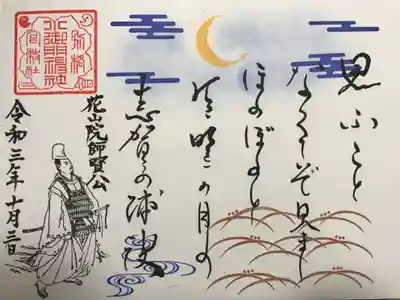 思ふこと
なくてぞ見まし
ほのぼのと
有明の月の
志賀の浦波
花山院師賢公
令和三年十月三日
別格
官幣社
小御門神社